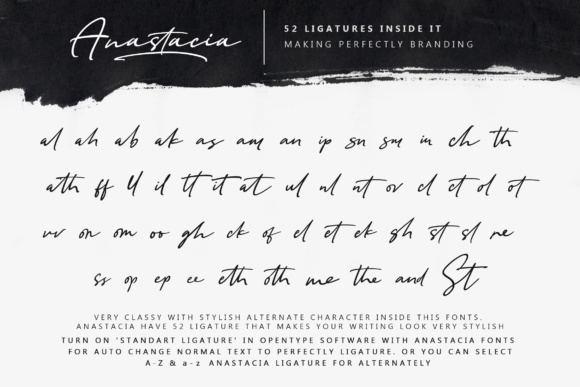 Anastacia
52 LIGATURES INSIDE IT
MAKING PERFECTLY BRANDING
al ah ab ak as am an ip sn sm in ch th
ath ff ll il tt it at ul nl nt ov cl ct ol ot
on om oo gh ck of el et ek sh st sl re
ss op ep ee eth oth me the and St
VERY CLASSY WITH STYLISH ALTERNATE CHARACTER INSIDE THIS FONTS.
ANASTACIA HAVE 52 LIGATURE THAT MAKES YOUR WRITING LOOK VERY STYLISH
TURN ON 'STANDART LIGATURE' IN OPENTYPE SOFTWARE WITH ANASTACIA FONTS
FOR AUTO CHANGE NORMAL TEXT TO PERFECTLY LIGATURE. OR YOU CAN SELECT
A-Z & a-z ANASTACIA LIGATURE FOR ALTERNATELY